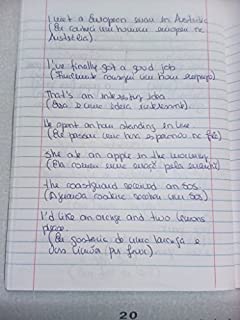 I met a European man in Australia
(Eu conheci um homem europeu na
Austrália)
I've finally got a good job
(Finalmente consegui um bom emprego)
That's an interesting idea
(Essa é uma ideia interessante)
He spent an hour standing in line
(Ele passou uma hora esperando na fila)
She ate an apple in the morning
(Ela comeu uma maçã pela manhã)
the coastguard received an SOS.
(A guarda costeira recebeu um SOS)
I'd like an orange and two lemons
please.
(Eu gostaria de uma laranja e
dois limões por favor)
20